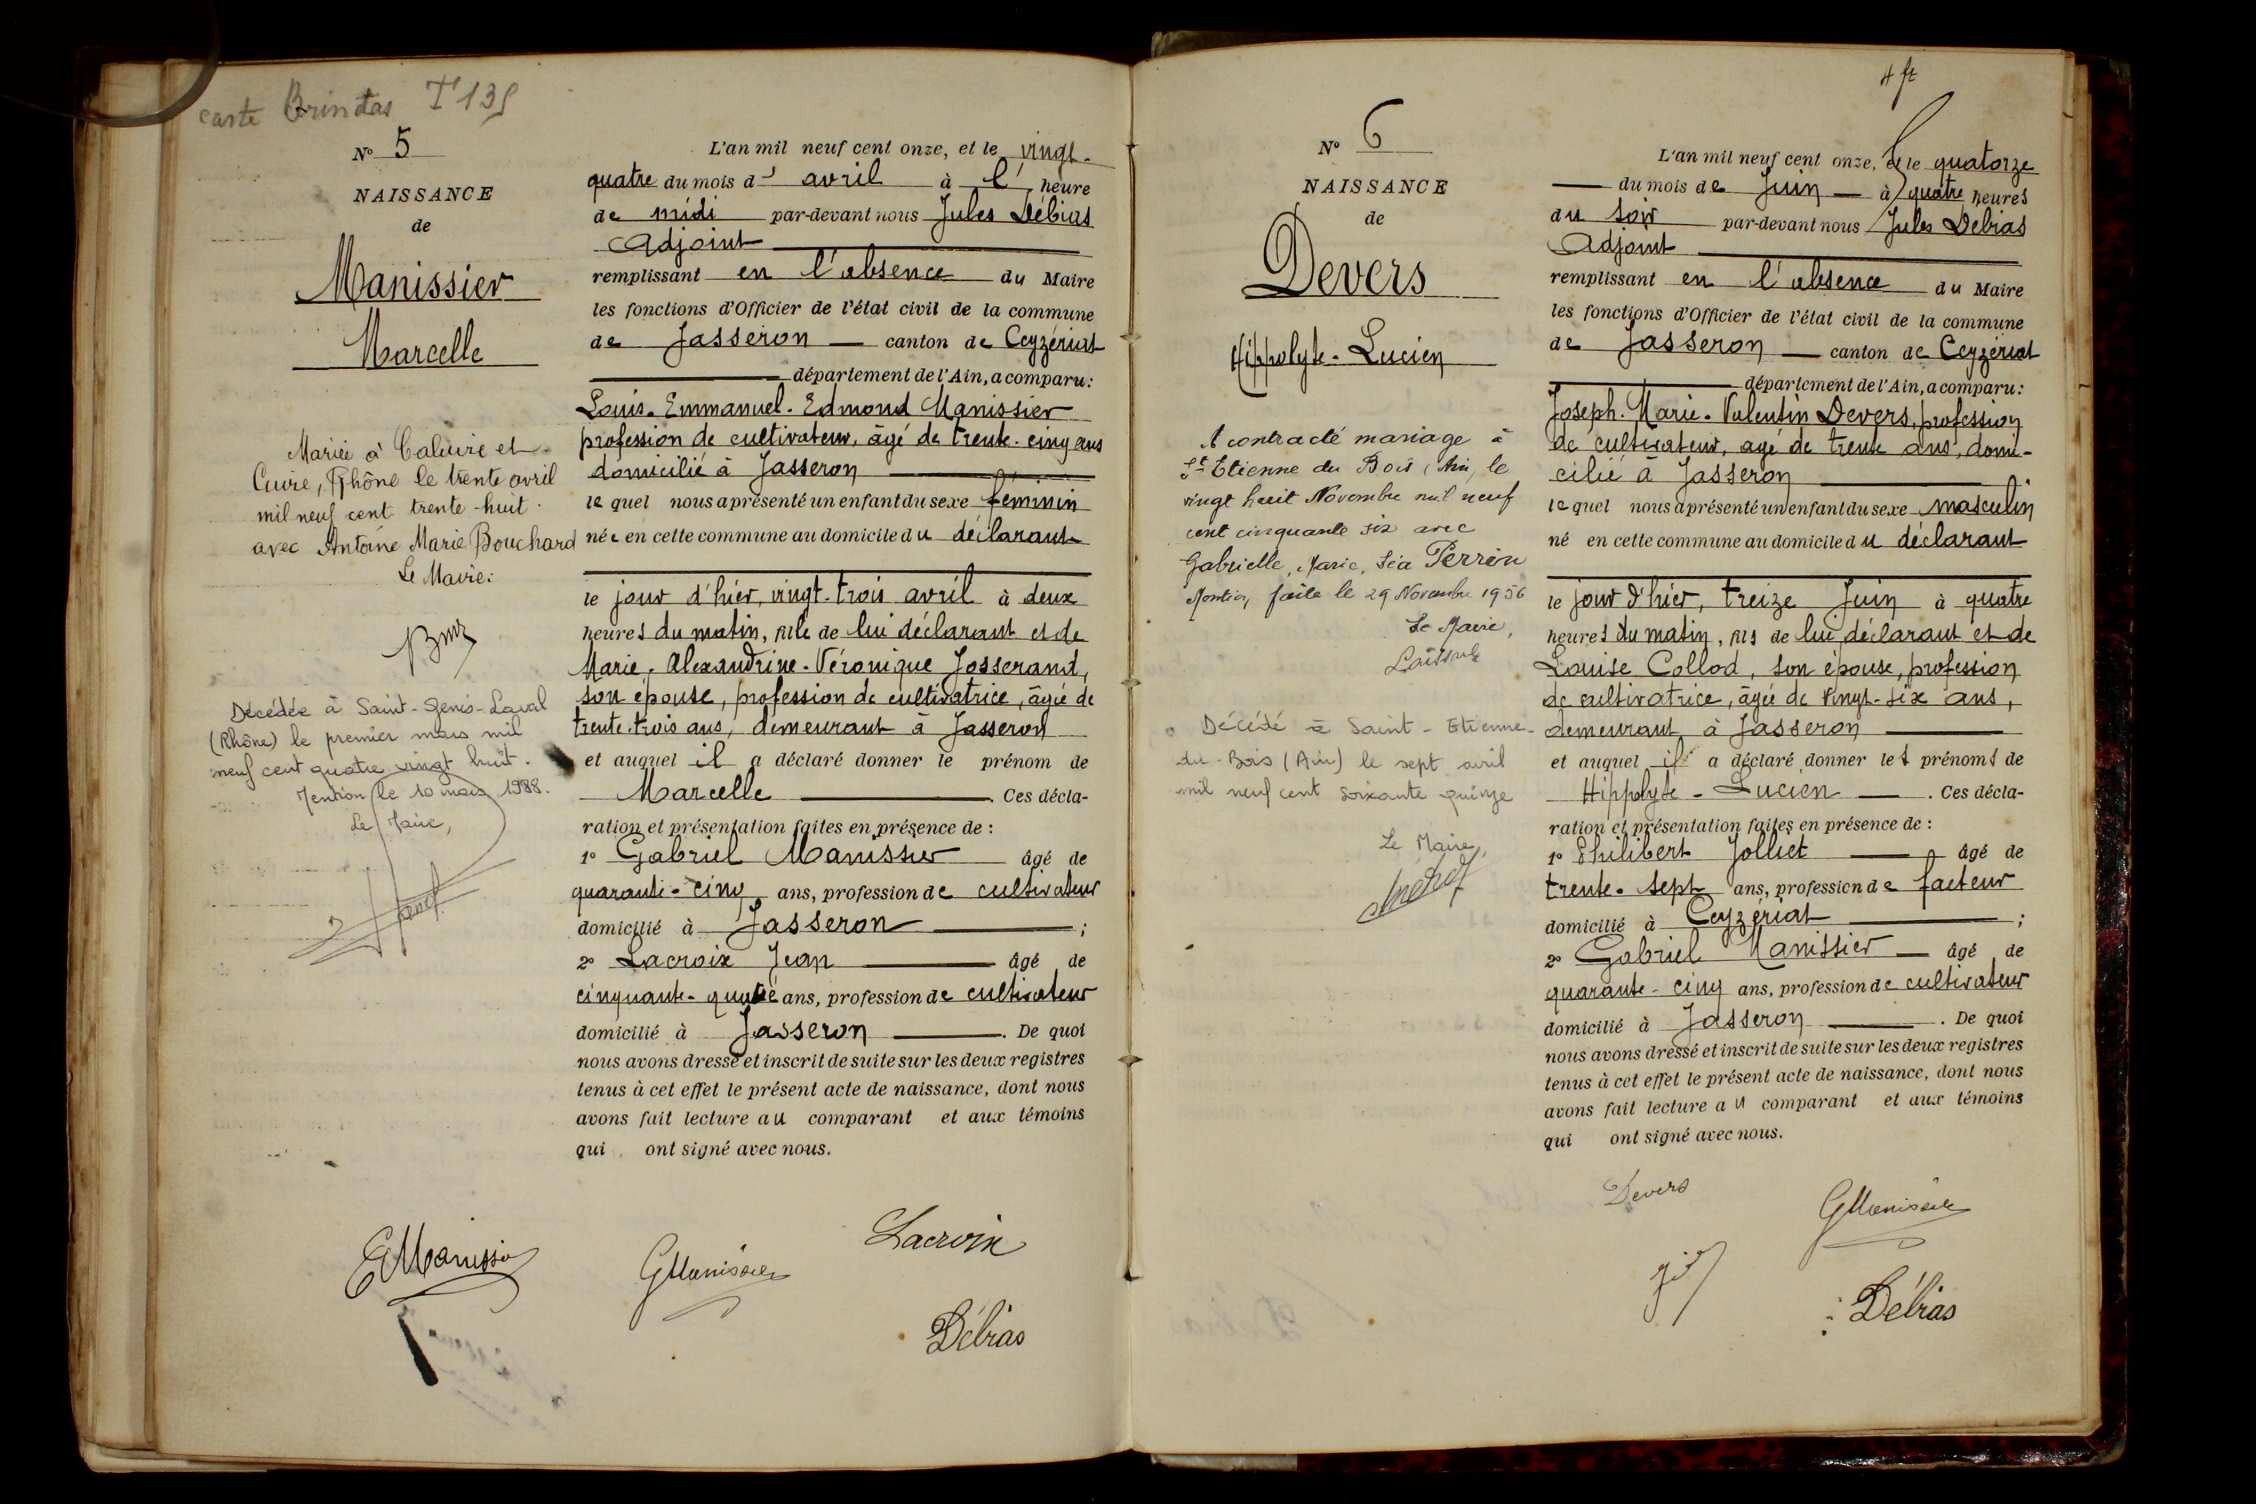 carte Brindas T 135
N° 5
NAISSANCE
de
Manissier
Marcelle
Mariée à Caluire et
Cuire, Rhône le trente avril
mil neuf cent trente-huit.
avec Antoine Marie Bouchard
Le Maire:
Décédée à Saint-Genis-Laval
(Rhône) le premier mars mil
neuf cent quatre vingt huit.
Mention le 10 mars 1988.
Le Maire,
L'an mil neuf cent onze, et le vingt-
quatre du mois d' avril à l' heure
de midi par-devant nous Jules Débias
Adjoint
remplissant en l'absence du Maire
les fonctions d'Officier de l'état civil de la commune
de Jasseron canton de Ceyzériat
département de l'Ain, a comparu:
Louis-Emmanuel-Edmond Manissier
profession de cultivateur, âgé de trente-cinq ans
domicilié à Jasseron
lequel nous a présenté un enfant du sexe féminin
née en cette commune au domicile du déclarant
le jour d'hier, vingt-trois avril à deux
heures du matin, fille de lui déclarant et de
Marie-Alexandrine-Véronique Josserand,
son épouse, profession de cultivatrice, âgée de
trente-trois ans, demeurant à Jasseron
et auquel il a déclaré donner le prénom de
Marcelle. Ces décla-
ration et présentation faites en présence de :
1° Gabriel Manissier âgé de
quarante-cinq ans, profession de cultivateur
domicilié à Jasseron ;
2° Lacroix Jean âgé de
cinquante-quatre ans, profession de cultivateur
domicilié à Jasseron. De quoi
nous avons dressé et inscrit de suite sur les deux registres
tenus à cet effet le présent acte de naissance, dont nous
avons fait lecture au comparant et aux témoins
qui ont signé avec nous.
EManissier
GManissier
Lacroix
Débias
4 ft
N° 6
NAISSANCE
de
Devers
Hippolyte-Lucien
A contracté mariage à
St Etienne du Bois (Ain) le
vingt huit Novembre mil neuf
cent cinquante six avec
Gabrielle, Marie, Léa Perrin
Mention faite le 29 Novembre 1956
Le Maire,
Décédé à Saint-Etienne-
du-Bois (Ain) le sept avril
mil neuf cent soixante quinze
Le Maire,
L'an mil neuf cent onze, et le quatorze
du mois de Juin à quatre heures
du soir par-devant nous Jules Debias
Adjoint
remplissant en l'absence du Maire
les fonctions d'Officier de l'état civil de la commune
de Jasseron canton de Ceyzériat
département de l'Ain, a comparu:
Joseph-Marie-Valentin Devers, profession
de cultivateur, agé de trente ans, domi-
cilié à Jasseron
lequel nous a présenté un enfant du sexe masculin
né en cette commune au domicile du déclarant
le jour d'hier, treize Juin à quatre
heures du matin, fils de lui déclarant et de
Louise Collod, son épouse, profession
de cultivatrice, âgée de vingt-six ans,
demeurant à Jasseron
et auquel il a déclaré donner les prénoms de
Hippolyte-Lucien. Ces décla-
ration et présentation faites en présence de :
1° Philibert Jolliet âgé de
trente-sept ans, profession de facteur
domicilié à Ceyzériat ;
2° Gabriel Manissier âgé de
quarante-cinq ans, profession de cultivateur
domicilié à Jasseron. De quoi
nous avons dressé et inscrit de suite sur les deux registres
tenus à cet effet le présent acte de naissance, dont nous
avons fait lecture au comparant et aux témoins
qui ont signé avec nous.
Devers
GManissier
Débias